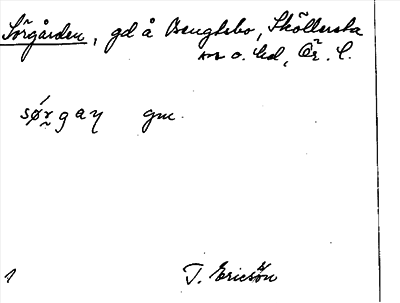 Sörgården, gd å Bengtsbo, Sköllersta
sn o. hd, Ör. l.
sørgaŋ gm.
1 T. Ericson